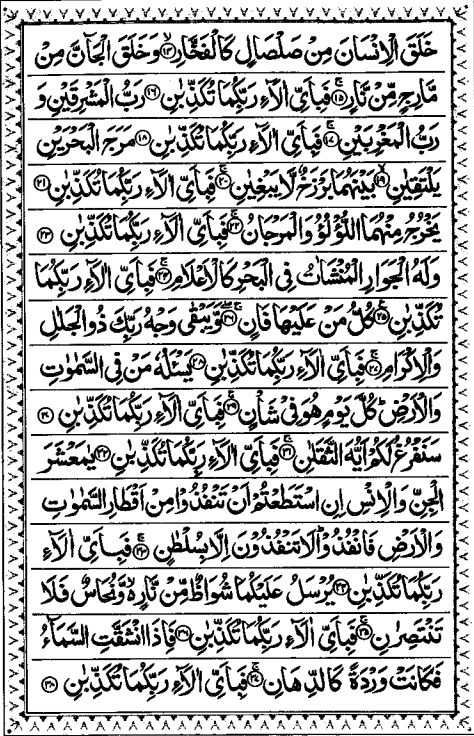 خَلَقَ الْاِنْسَانَ مِنْ صَلْصَالٍ كَالْفَخَّارِ ﴿۱۴﴾ وَخَلَقَ الْجَآنَّ مِنْ
مَّارِجٍ مِّنْ نَّارٍ ﴿۱۵﴾ فَبِاَيِّ اٰلَآءِ رَبِّكُمَا تُكَذِّبٰنِ ﴿۱۶﴾ رَبُّ الْمَشْرِقَيْنِ وَ
رَبُّ الْمَغْرِبَيْنِ ﴿۱۷﴾ فَبِاَيِّ اٰلَآءِ رَبِّكُمَا تُكَذِّبٰنِ ﴿۱۸﴾ مَرَجَ الْبَحْرَيْنِ
يَلْتَقِيٰنِ ﴿۱۹﴾ بَيْنَهُمَا بَرْزَخٌ لَّا يَبْغِيٰنِ ﴿۲۰﴾ فَبِاَيِّ اٰلَآءِ رَبِّكُمَا تُكَذِّبٰنِ ﴿۲۱﴾
يَخْرُجُ مِنْهُمَا اللُّؤْلُؤُ وَالْمَرْجَانُ ﴿۲۲﴾ فَبِاَيِّ اٰلَآءِ رَبِّكُمَا تُكَذِّبٰنِ ﴿۲۳﴾
وَلَهُ الْجَوَارِ الْمُنْشَئٰتُ فِي الْبَحْرِ كَالْاَعْلَامِ ﴿۲۴﴾ فَبِاَيِّ اٰلَآءِ رَبِّكُمَا
تُكَذِّبٰنِ ﴿۲۵﴾ كُلُّ مَنْ عَلَيْهَا فَانٍ ﴿۲۶﴾ وَّيَبْقٰى وَجْهُ رَبِّكَ ذُو الْجَلٰلِ
وَالْاِكْرَامِ ﴿۲۷﴾ فَبِاَيِّ اٰلَآءِ رَبِّكُمَا تُكَذِّبٰنِ ﴿۲۸﴾ يَسْـَٔلُهٗ مَنْ فِي السَّمٰوٰتِ
وَالْاَرْضِ ؕ كُلَّ يَوْمٍ هُوَ فِيْ شَاْنٍ ﴿۲۹﴾ فَبِاَيِّ اٰلَآءِ رَبِّكُمَا تُكَذِّبٰنِ ﴿۳۰﴾
سَنَفْرُغُ لَكُمْ اَيُّهَ الثَّقَلٰنِ ﴿۳۱﴾ فَبِاَيِّ اٰلَآءِ رَبِّكُمَا تُكَذِّبٰنِ ﴿۳۲﴾ يٰمَعْشَرَ
الْجِنِّ وَالْاِنْسِ اِنِ اسْتَطَعْتُمْ اَنْ تَنْفُذُوْا مِنْ اَقْطَارِ السَّمٰوٰتِ
وَالْاَرْضِ فَانْفُذُوْا ؕ لَا تَنْفُذُوْنَ اِلَّا بِسُلْطٰنٍ ﴿۳۳﴾ فَبِاَيِّ اٰلَآءِ
رَبِّكُمَا تُكَذِّبٰنِ ﴿۳۴﴾ يُرْسَلُ عَلَيْكُمَا شُوَاظٌ مِّنْ نَّارٍ ۙ وَّنُحَاسٌ فَلَا
تَنْتَصِرٰنِ ﴿۳۵﴾ فَبِاَيِّ اٰلَآءِ رَبِّكُمَا تُكَذِّبٰنِ ﴿۳۶﴾ فَاِذَا انْشَقَّتِ السَّمَآءُ
فَكَانَتْ وَرْدَةً كَالدِّهَانِ ﴿۳۷﴾ فَبِاَيِّ اٰلَآءِ رَبِّكُمَا تُكَذِّبٰنِ ﴿۳۸﴾